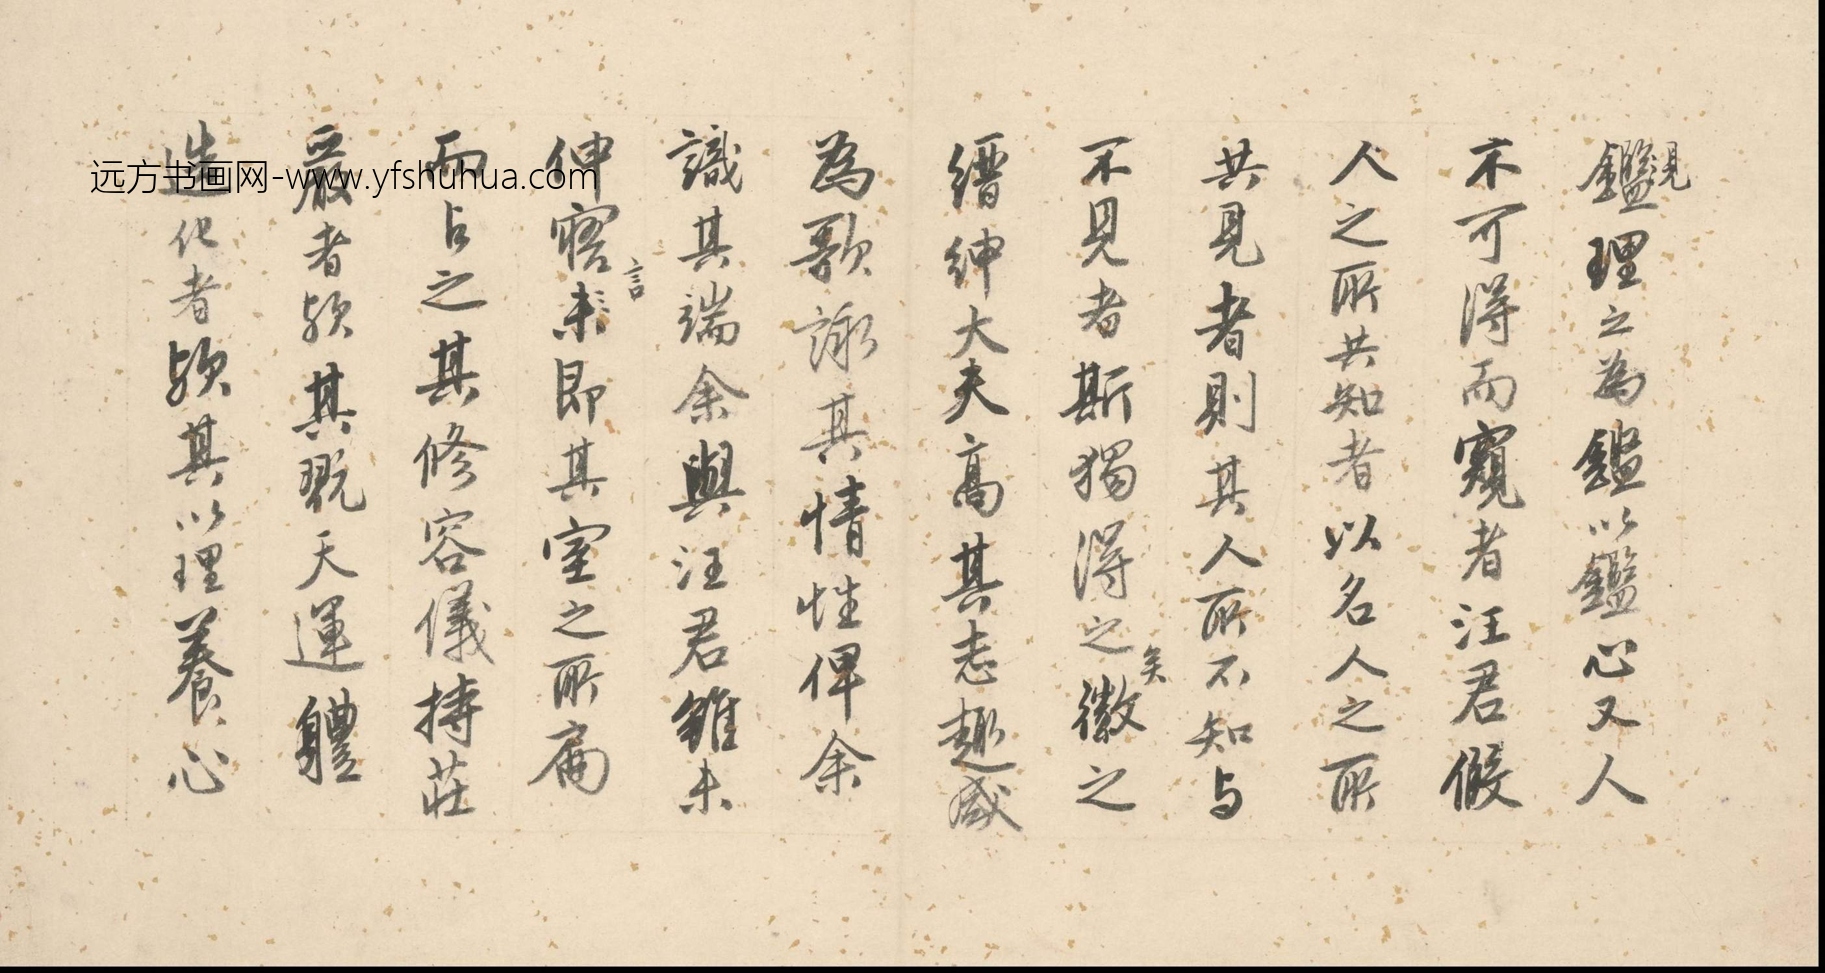 鑑見理之為鑑以鑑心又人
不可得而窺者汪君假
人之所共知者以名人之所
共見者則其人所不知与
不見者斯獨得之矣徵之
縉紳大夫高其志趣咸
為歌詠其情性俾余
識其端余與汪君雖未
伸寤言即其室之所扁
而占之其修容儀持莊
嚴者歟其翫天運體
造化者歟其以理養心
远方书画网-www.yfshuhua.com